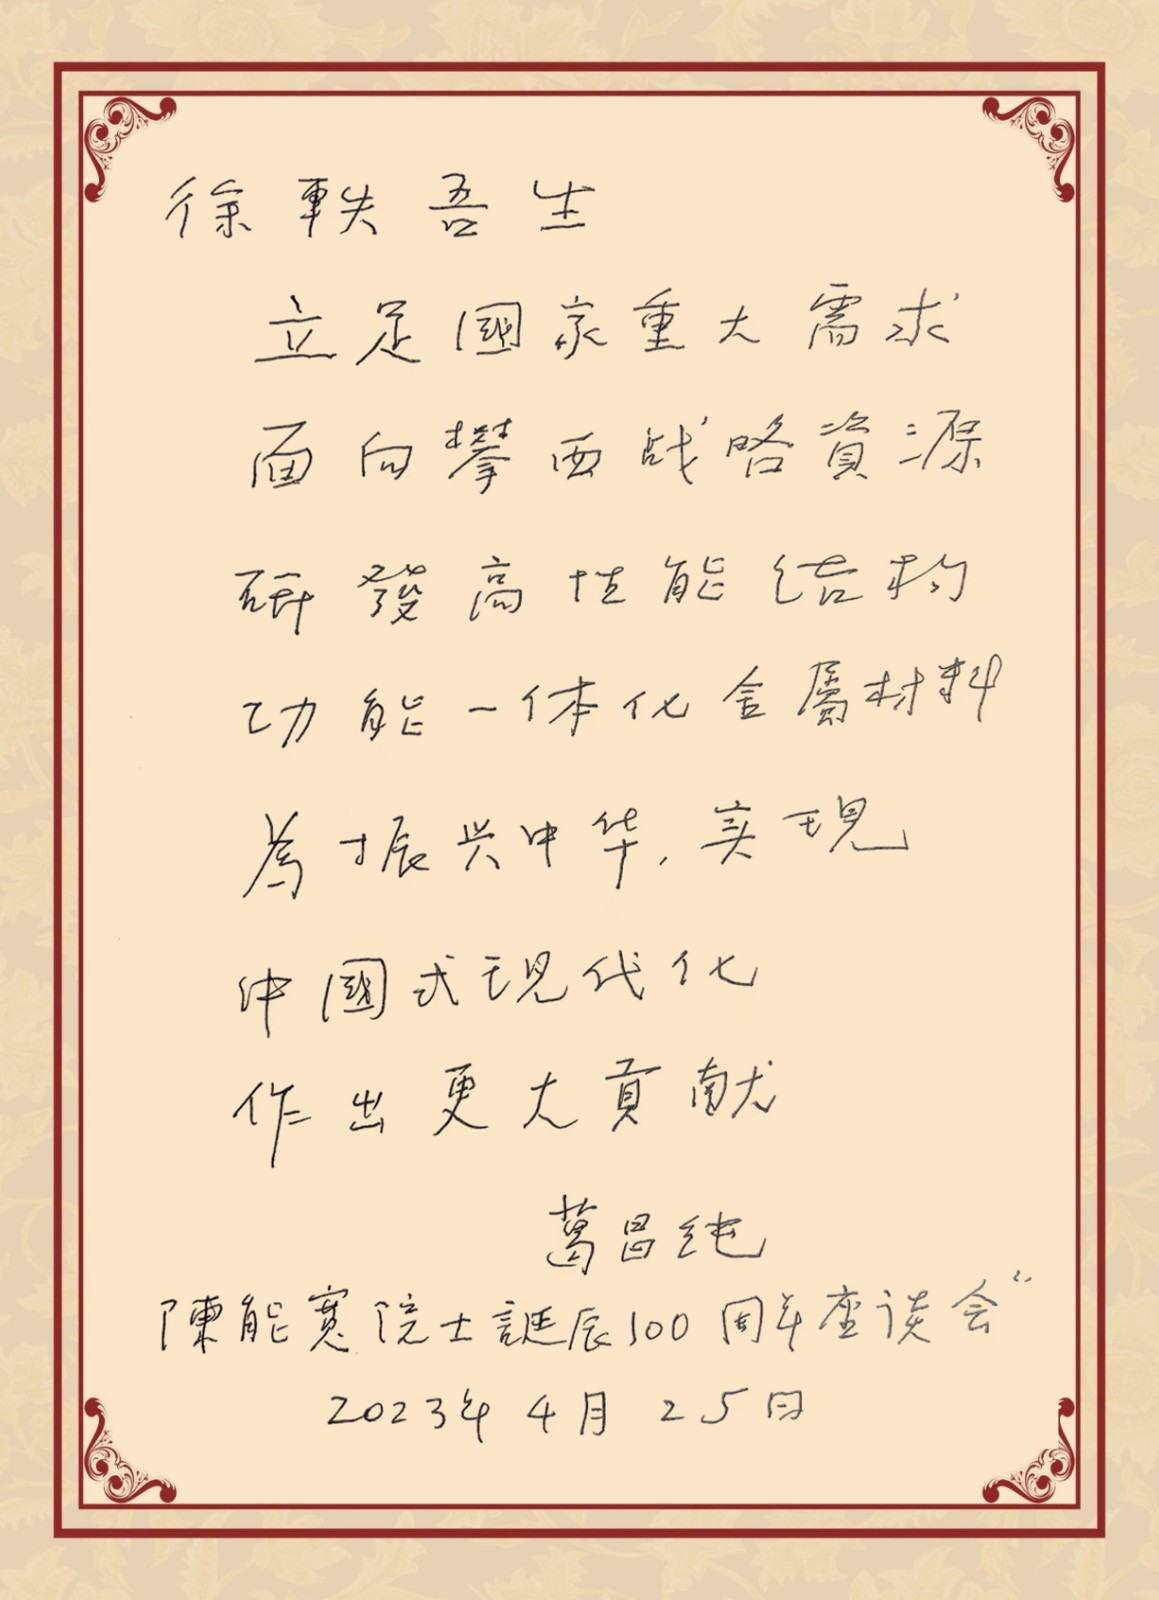 徐軼吾生
立足國家重大需求
面向攀西战略資源
研發高性能结构
功能一体化金屬材料
為振兴中华,実現
中國式現代化
作出更大貢献
葛昌纯
陳能寬院士誕辰100周年座谈会"
2023年4月25日